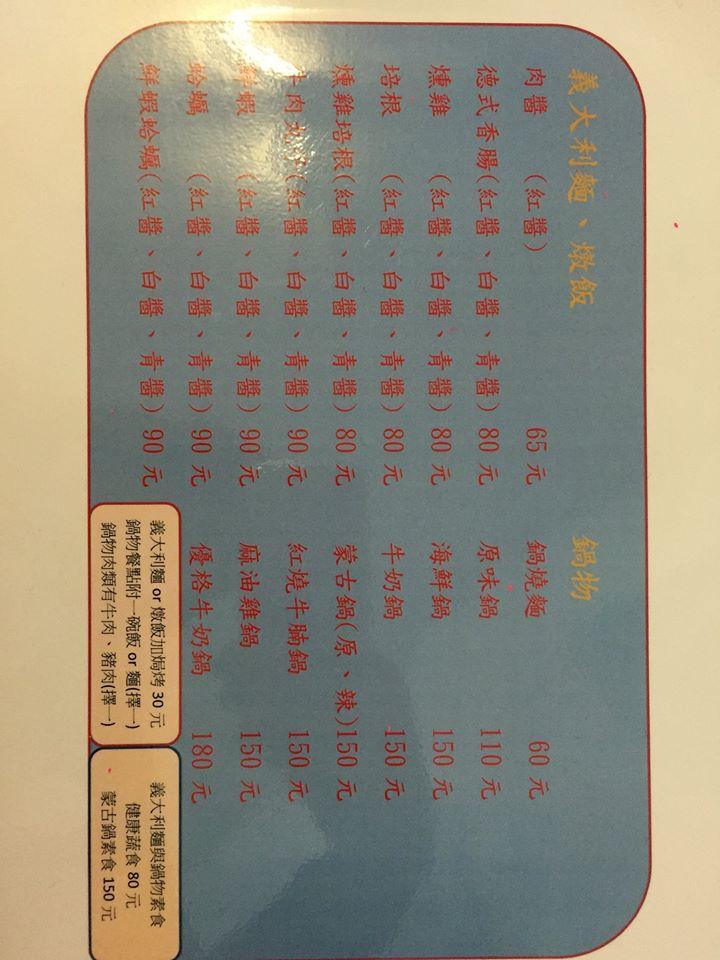 義大利麵、燉飯
肉醬 (紅醬) 65 元
德式香腸(紅醬、白醬、青醬) 80 元
燻雞 (紅醬、白醬、青醬) 80 元
培根 (紅醬、白醬、青醬) 80 元
燻雞培根(紅醬、白醬、青醬) 80 元
牛肉(紅醬、白醬、青醬) 90 元
鮮蝦 (紅醬、白醬、青醬) 90 元
蛤蠣 (紅醬、白醬、青醬) 90 元
鮮蝦蛤蠣(紅醬、白醬、青醬) 90 元
鍋物
鍋燒麵 60 元
原味鍋 110 元
海鮮鍋 150 元
牛奶鍋 150 元
蒙古鍋(原、辣)150 元
紅燒牛腩鍋 150 元
麻油雞鍋 150 元
優格牛奶鍋 180 元
義大利麵 or 燉飯加焗烤 30 元
鍋物餐點附一碗飯 or 麵(擇一)
鍋物肉類有牛肉、豬肉(擇一)
義大利麵與鍋物素食
健康蔬食 80 元
蒙古鍋素食 150 元